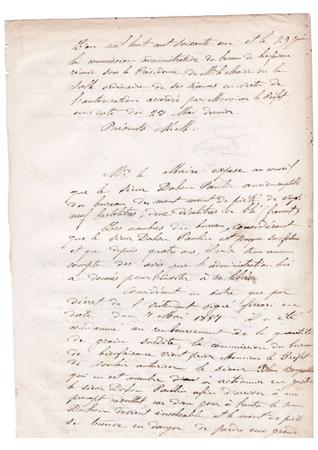 L'an mil huit cent soixante un et le 29
la commission administrative du bureau de bienfaisance
réunie sous la Présidence de Mr le Maire en la
salle ordinaire de ses séances en vertu de
l'autorisation accordée par Monsieur le Préfet
en date du 23 Mai dernier.
Présents M.M.
Mr le Maire expose au conseil
que le sieur Dahon Paulin
du bureau du mont de piété, de
neuf hectolitres, deux décalitres de blé (froment)
Les membres du bureau, considérant
que le sieur Dahon Paulin est
et que depuis quatre ans il n'a tenu aucun
compte des avis que l'administration lui
a donnés pour l'inviter à se libérer
Considérant en outre que par
décret de l'intendant signé ferrari en
date du 7 Mai 1857 il a été
condamné au remboursement de la quantité
de grains susdite, la commission du bureau
de bienfaisance vient prier Monsieur le Préfet
de vouloir autoriser le sieur
qui en est membre à actionner en justice
le sieur Dahon Paulin afin d'arriver à un
prompt résultat car d'un jour à l'autre le sieur
Dahon devient insolvable et le mont de piété
se trouve en danger de perdre son grain